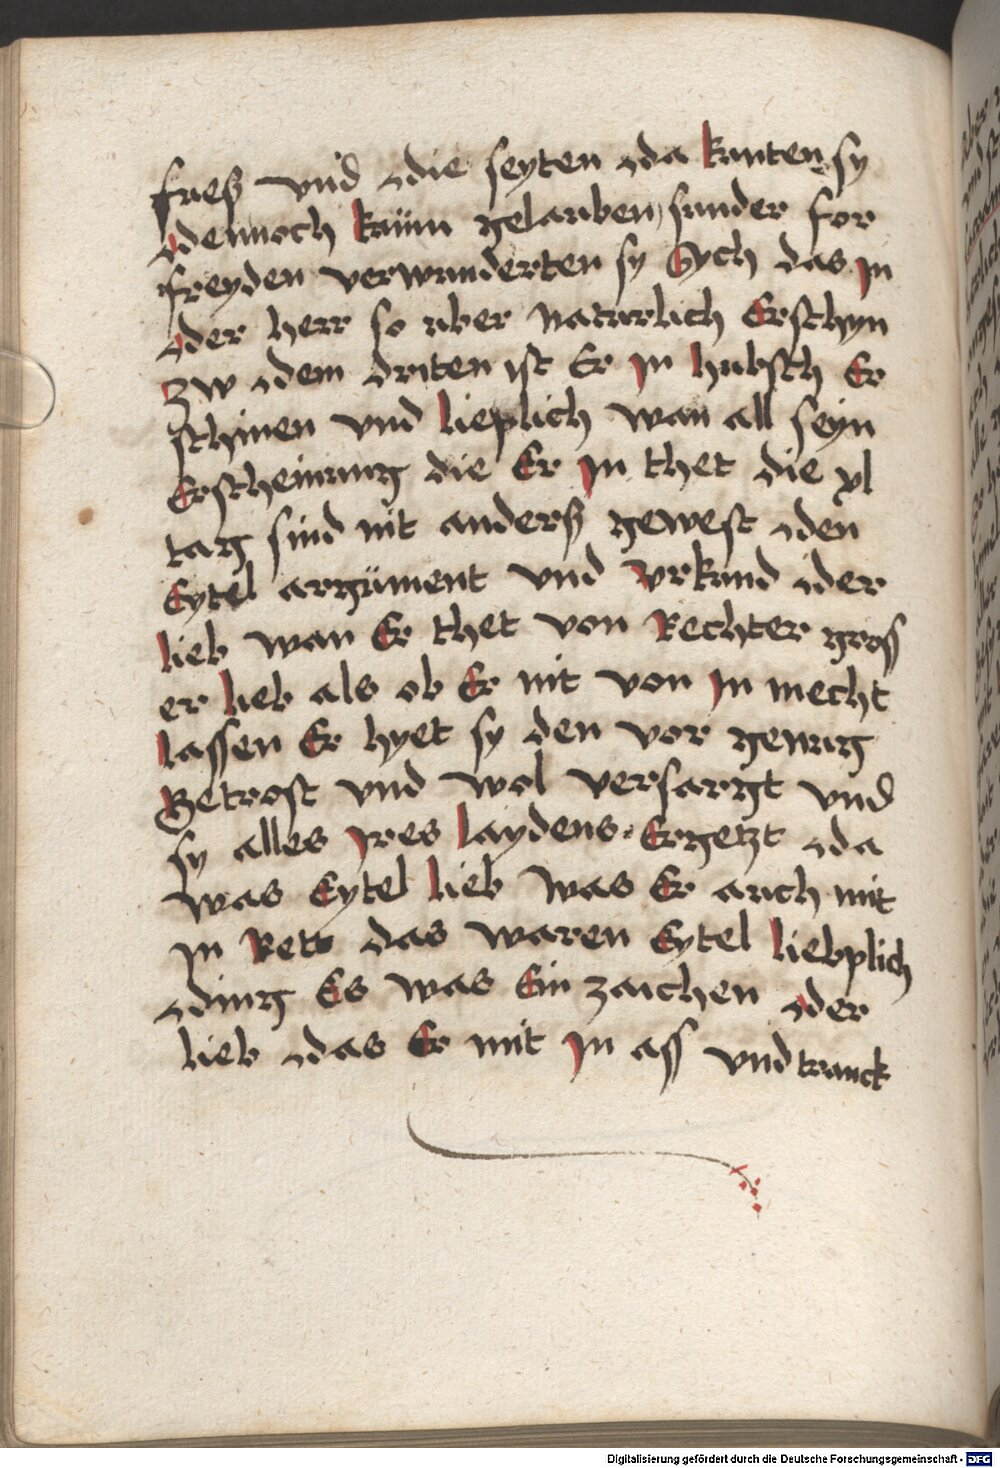 fueß vnd die seyten da kunten sy
dennoch kaum gelauben sunder for
freyden verwunderten sy Sych das jn
der herr so aber Naturlich Erschyn
zw dem driten ist Er jn hubsch Er
schinen vnd lieplich wan all seyn
Erscheinung die Er jn thet die xl
tag sind nit anderß gewest den
Eytel argument vnd vrkund der
lieb wan Er thet von Rechter gross
er lieb als ob Er nit von jn mecht
lassen Er hyet sy den vor genug
Getrost vnd wol versargt vnd
sy alles jres laydens Ergetzt da
was Eytel lieb was Er auch mit
jn Rett das waren Eytel lieblich
ding Es was Ein zaichen der
lieb das Er mit jn ass vnd tranck
Digitalisierung gefördert durch die Deutsche Forschungsgemeinschaft - DFG